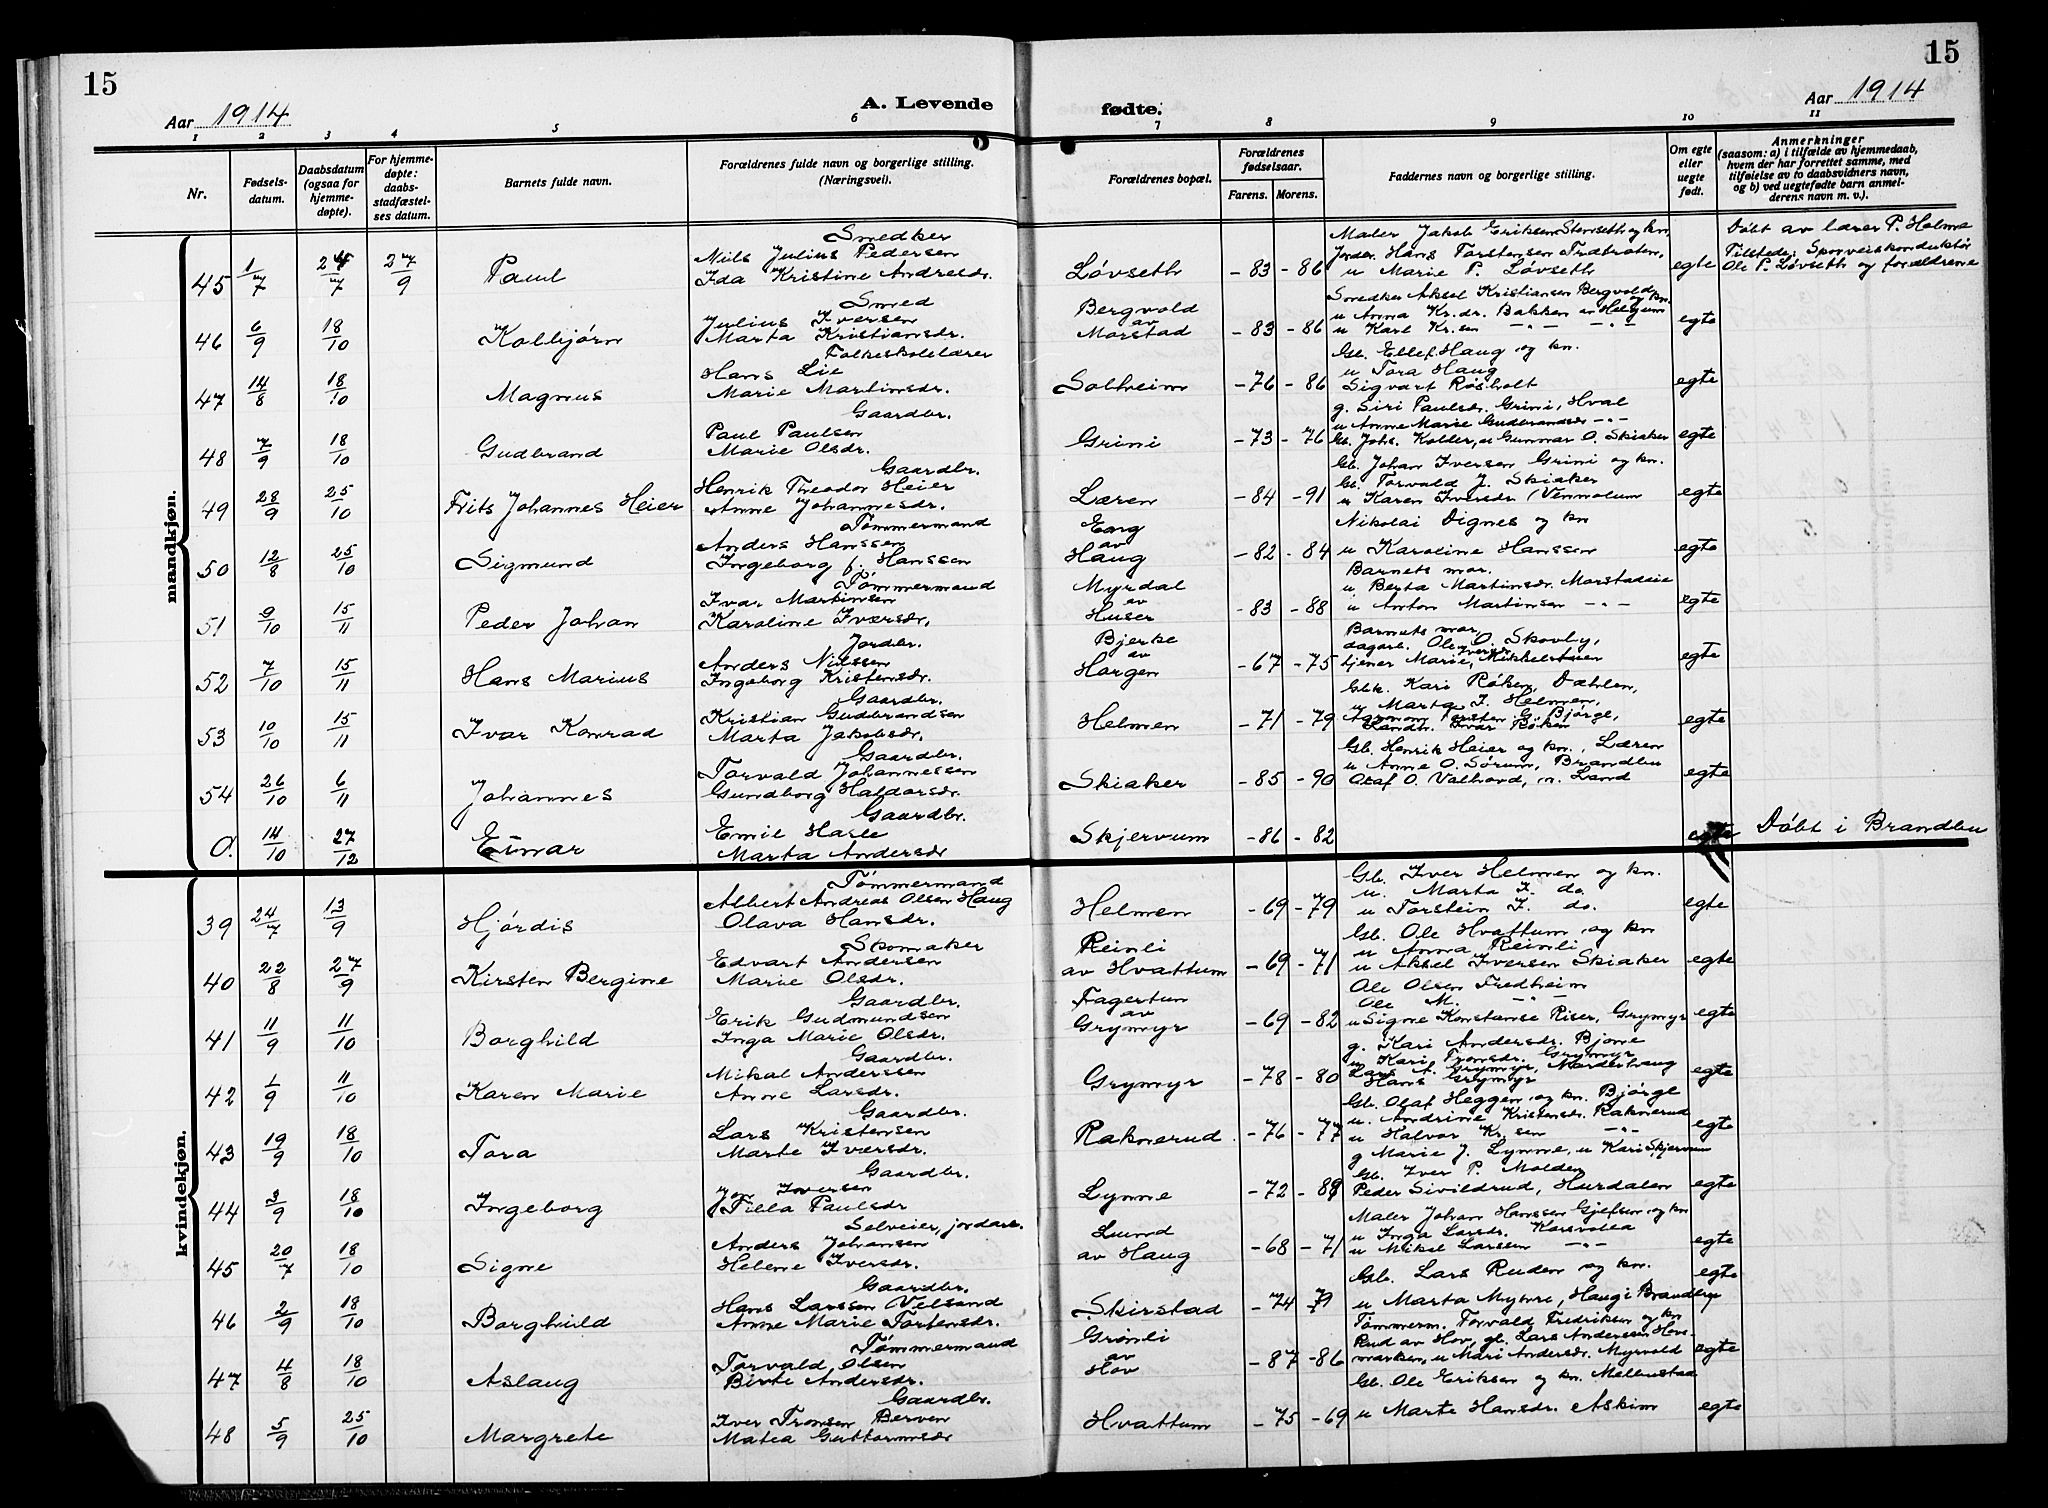 15
15
Aar 1914
A. Levende
fødte.
Aar 1914
1 2 3 4 5 6 7 8 9 10 11
Nr.
Fødselsdatum.
Daabsdatum (ogsaa for hjemmedøpte).
For hjemmedøpte: daabsstadfæstelses datum.
Barnets fulde navn.
Forældrenes fulde navn og borgerlige stilling. (Næringsvei).
Forældrenes bopæl.
Forældrenes fødselsaar.
Farens. Morens.
Faddernes navn og borgerlige stilling.
Om egte eller uegte født.
Anmerkninger (saasom: a) i tilfælde av hjemmedaab, hvem der har forrettet samme, med tilføielse av to daabsvidners navn, og b) ved uegtefødte barn anmelderens navn m. v.).
mandkjøn.
Smedker Maler Jakob Eriksen Stenseth og kn, Døbt av lærer P. Helme
Nils Julius Pedersen Jorder. Hans Torstensen Trætraten, Tilstede: Sporveiskonduktør
45 1/7 27/9 Paul Ida Kristine Andresdr. Løvseth -83 -86 u Marie P. Løvseth egte Ole P. Løvseth og forældrene
Smed Bergvold Smedker Aksel Kristiansen Bergvold og kn.
Julius Iversen av u Anna Kr.dr. Bakken av Helgum
46 6/9 18/10 Kolbjørn Marta Kristiansdr. Morstad -83 -86 u Karl Kr.sen -"- -"- egte
Folkeskolelærer Gb. Ellef Haug og kn.
Hans Lie u Tora Haug
47 14/8 18/10 Magnus Marie Martinsdr. Solheim -76 -86 Sigvart Røsholt egte
Gaardbr. g. Siri Paulsdr. Grini, Hval
Paul Paulsen u Anne Marie Gudbrandsdr -"-
48 7/9 18/10 Gudbrand Marie Olsdr. Grini -73 -76 Gb. Johs. Koller, u Gunnar O. Skiaker egte
Gaardbr. Gb. Johan Iversen Grini og kn.
Henrik Theodor Heier Gb. Torvald J. Skiaker
49 28/9 25/10 Frits Johannes Heier Anne Johannesdr. Læren -84 -91 u Karen Iversdr Vennolum egte
Tømmermand Eng Nikolai Dignes og kn
Anders Hanssen av
50 12/8 25/10 Sigmund Ingeborg f. Hanssen Haug -82 -84 u Karoline Hanssen egte
Tømmermand Myrdal Barnets mor.
Ivar Martinsen av u Berta Martinsdr. Morstadeie
51 9/10 15/11 Peder Johan Karoline Iversdr. Huser -83 -88 u Anton Martinsen -"- egte
Jordbr. Bjerke Barnets mor,
Anders Nielssen av dagarb. Ole O. Skovly,
52 7/10 15/11 Hans Marius Ingeborg Kristensdr. Horgen -67 -75 tjener Marie Iversdr. Mikkelstuen egte
Gaardbr. Gbk. Kari Røken, Dæhlen,
Kristian Gudbrandsen u Marta I. Helmen,
53 10/10 15/11 Ivar Konrad Marta Jakobsdr. Helmen -71 -79 Agronom Torsten G. Bjørge, Landm. Ivar Røken egte
Gaardbr. Gb. Henrik Heier og kn., Læren
Torvald Johannessen u Anne O. Sørum, Brandbu
54 26/10 6/11 Johannes Gundborg Haldorsdr. Skiaker -85 -90 Olaf O. Valhovd, n. Land egte
Gaardbr.
Emil Hasle
0. 14/10 27/12 Einar Marta Andersdr Skjervum -86 -82 egte Døbt i Brandbu
kvindekjøn.
Tømmermand Gb. Iver Helmen og kn.
Albert Andreas Olsen Haug u. Marta I. do.
39 24/7 13/9 Hjørdis Olava Hansdr. Helmen -69 -79 u Torstein I. do. egte
Skomaker Reinli Gb. Ole Hvattum og kn
Edvart Andersen u Anna Reinli
40 22/8 27/9 Kirsten Bergine Marie Olsdr. av Hvattum -69 -71 u Aksel Iversen Skiaker egte
Gaardbr. Fagertun Ole Olsen Fredheim
Erik Gudmundsen av Ole M. -"-
41 11/9 11/10 Borghild Inga Marie Olsdr. Grymyr -69 -82 u Signe Konstanse Riser, Grymyr egte
Gaardbr. g. Kari Andersdr. Bjone
Mikal Anderssen u Kari Tronsdr. Grymyr
42 1/9 11/10 Karen Marie Anne Larsdr. Grymyr -78 -80 Lars A. Grymyr, Hans Grymyr egte
Gaardbr. Gb. Olaf Heggen og kn. Bjørge
Lars Kristensen u. Andrine Kristensdr. Raknerud
43 19/9 18/10 Tora Marte Iversdr. Raknerud -76 -77 u Halvor Kr.sen -"- egte
Gaardbr. g Marie J. Lynne, u Kari Skjervum
Jon Iversen Gb. Iver P. Molden
44 3/9 18/10 Ingeborg Tilla Paulsdr Lynne -72 Peder Sivildrud, Hurdalen egte
Selveier, jordarb. Lund Maler Johan Hanssen Gjefsen og kn
Anders Johansen u Inga Larsdr. Korsvolla
45 20/7 18/10 Signe Helene Iversdr. av Haug -68 -71 u Mikal Larsen -"- egte
Gaardbr. Gb. Lars Ruden og kn. egte
Hans Larssen Velsand
46 2/9 18/10 Borghild Anne Marie Tortensdr. Skirstad -74 -79 u Marta Myhre, Haug i Brandbu
Tømmermand Grønli Tømmerm. Torvald Fredriksen og kn
Torvald Olsen av Rud av Hov, gb. Lars Anderssen Hov-
47 4/8 18/10 Aslaug Birte Andersdr. Hov -87 -86 marken, u Mari Andersdr. Myrvold egte
Gaardbr. Gb. Ole Eriksen og kn. Mellumstad
Iver Tronsen Berven
48 5/9 25/10 Margrete Matea Guttormsdr Hvattum -75 -69 u Marte Hansdr. Askim egte